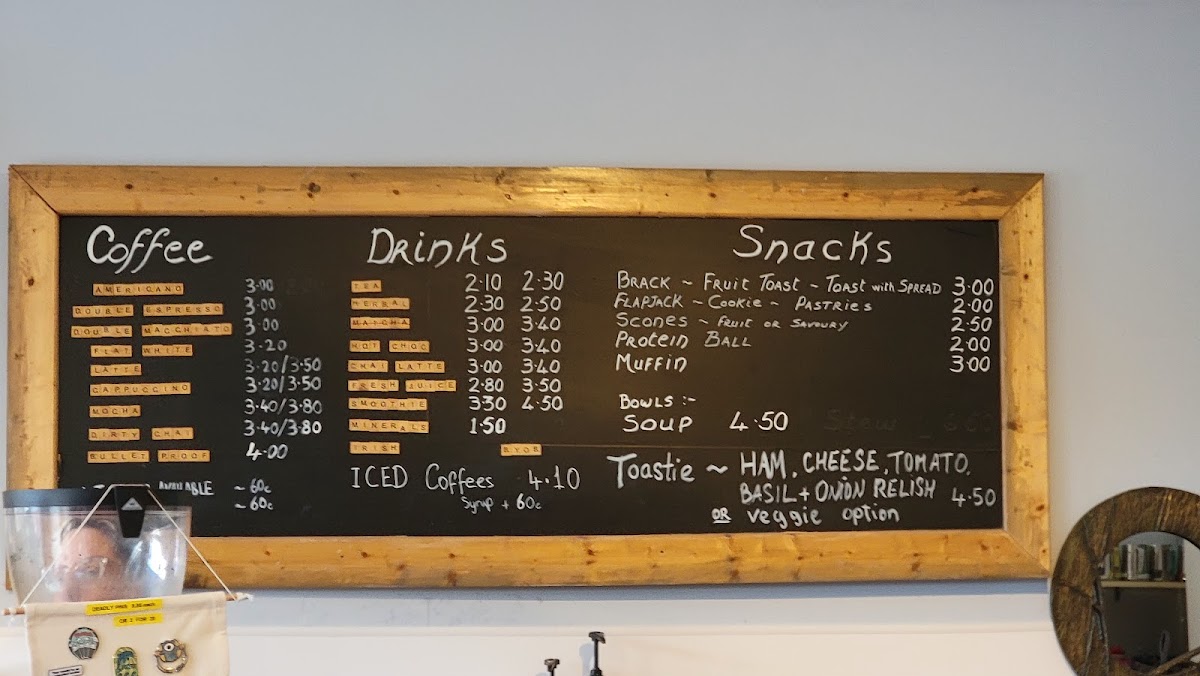 Coffee
AMERICANO 3.00
DOUBLE ESPRESSO 3.00
DOUBLE MACCHIATO 3.00
FLAT WHITE 3.20
LATTE 3.20/3.50
CAPPUCCINO 3.20/3.50
MOCHA 3.40/3.80
DIRTY CHAI 3.40/3.80
BULLET PROOF 4.00
AVAILABLE ~ 60c
~ 60c
Drinks
TEA 2.10 2.30
HERBAL 2.30 2.50
MATCHA 3.00 3.40
HOT CHOC 3.00 3.40
CHAI LATTE 3.00 3.40
FRESH JUICE 2.80 3.50
SMOOTHIE 3.50 4.50
MINERALS 1.50
IRISH BYOB
ICED Coffees 4.10
Syrup + 60c
Snacks
BRACK ~ FRUIT TOAST ~ TOAST with SPREAD 3.00
FLAPJACK ~ COOKIE ~ PASTRIES 2.00
SCONES ~ FRUIT OR SAVOURY 2.50
PROTEIN BALL 2.00
MUFFIN 3.00
BOWLS :-
SOUP 4.50
Toastie ~ HAM, CHEESE, TOMATO,
BASIL + ONION RELISH 4.50
OR veggie option
OR 2 FOR